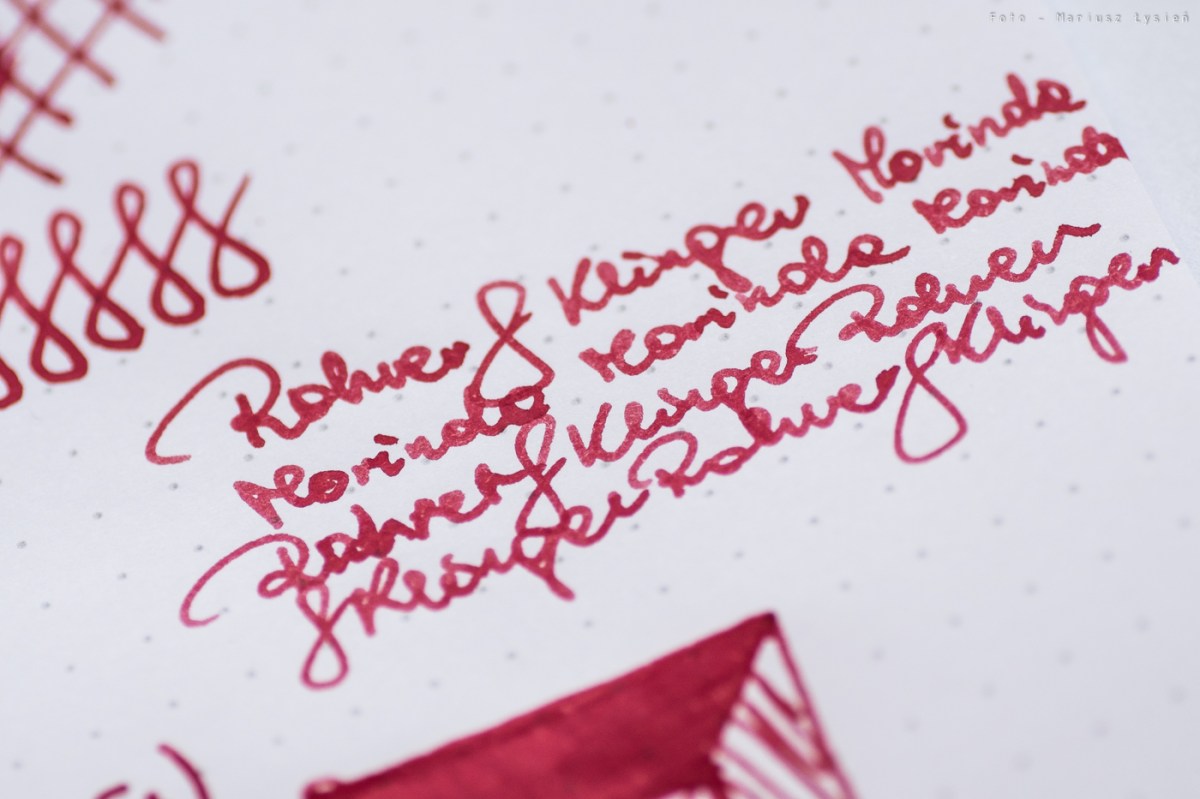 Foto - Mariusz Łysień
Rohrer & Klinger Morinda
Morinda Morinda Morinda
Rohrer & Klinger Rohrer
& Klinger Rohrer & Klinger